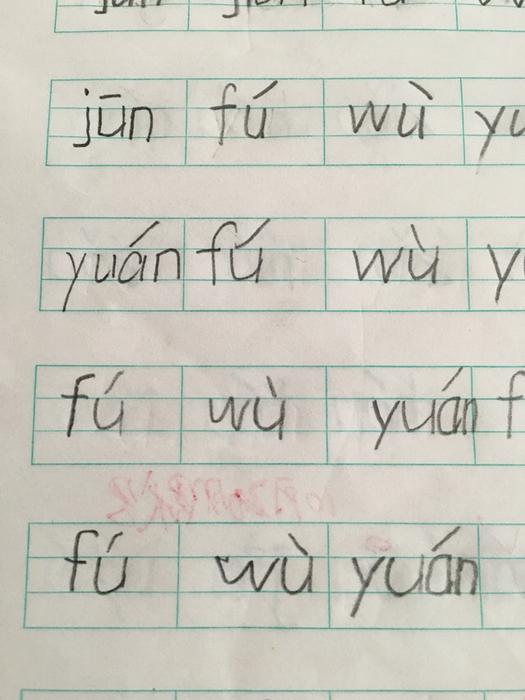 jūn fú wù
yuán fú wù
fú wù yuán
fú wù yuán